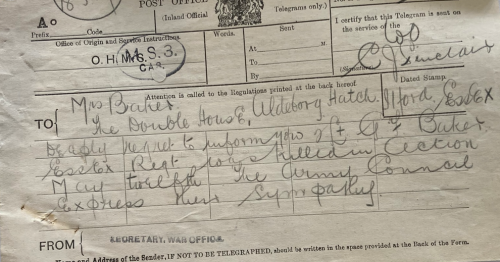 POST OFFICE
(Inland Official
Telegrams only.)
A
Prefix Code
Words.
Sent
I certify that this Telegram is sent on
the service of the
Office of Origin and Service Instructions.
O. H. M. S.
M.S.3.
CAS.
At
To
By
Sinclair
(Signature)
Attention is called to the Regulations printed at the back hereof.
Dated Stamp
TO Mrs Baker
The Double House, Aldboro Hatch, Ilford, Essex
Deeply regret to inform you Lt G Baker
Essex Regt was killed in action
May twelfth The Army Council
express their sympathy
FROM SECRETARY, WAR OFFICE.
Name and Address of the Sender, IF NOT TO BE TELEGRAPHED, should be written in the space provided at the Back of the Form.